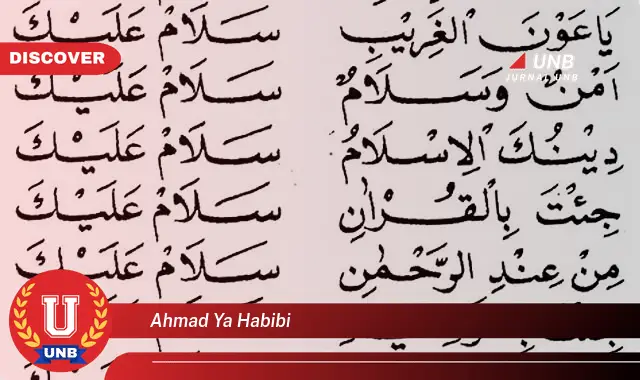 يَاعَوْنَ الْغَرِيْبِ سَلَامْ عَلَيْكَ
DISCOVER
UNB
JURNAL UNB
اَمْنٌ وَسَلَامٌ سَلَامْ عَلَيْكَ
دِيْنُكَ الْاِسْلَامُ سَلَامْ عَلَيْكَ
جِئْتَ بِالْقُرْاٰنِ سَلَامْ عَلَيْكَ
مِنْ عِنْدِ الرَّحْمٰنِ سَلَامْ عَلَيْكَ
Ahmad Ya Habibi
U
UNB